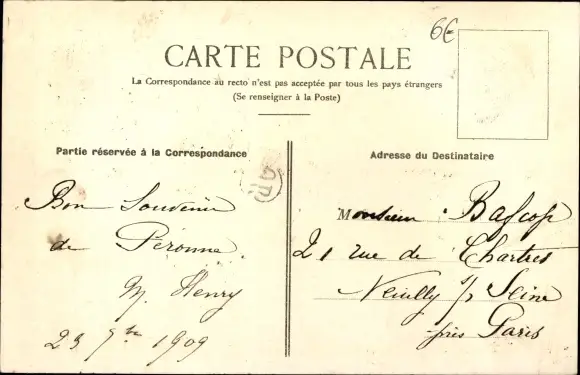 6€
CARTE POSTALE
La Correspondance au recto n'est pas acceptée par tous les pays étrangers
(Se renseigner à la Poste)
Partie réservée à la Correspondance
Bon Souvenir
de Péronne.
M. Henry
23 9bre 1909
Adresse du Destinataire
Monsieur Bafcop
21 rue de Chartres
Neuilly s/ Seine
près Paris